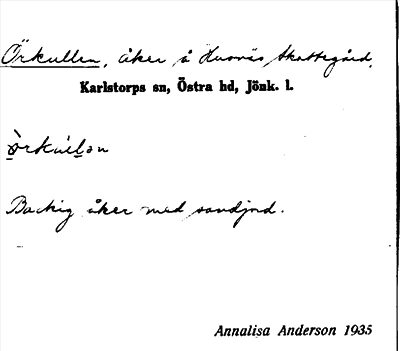 Örkullen, åker å Husnäs Skattegård.
Karlstorps sn, Östra hd, Jönk. l.
Backig åker med sandjord.
Annalisa Anderson 1935